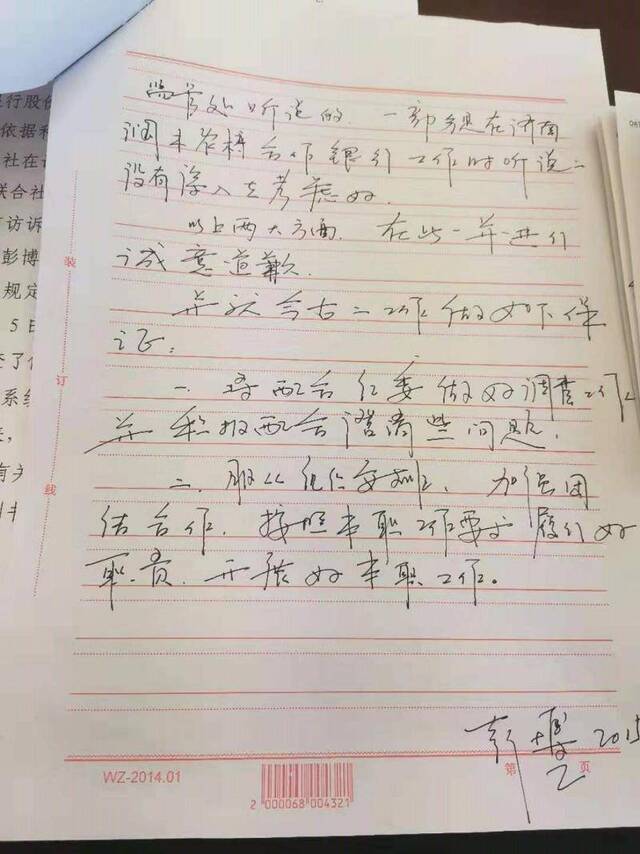 监管处听说的. 一部分是在济南
润丰农村合作银行工作时听说.
没有深入去考虑好.
以上两大方面. 在此一并进行
诚意道歉.
并就今后工作做如下保
证:
一. 将配合纪委做好调查工作
并积极配合澄清些问题.
二. 服从组织安排. 加强团
结合作. 按照本职工作要求履行好
职责. 开张好本职工作。
彭博 2015
装
订
线
WZ-2014.01
2 000068 004321
第 页
行股份
依据和
社在
联合社
访诉
彭博
规定
5日
系统
有关